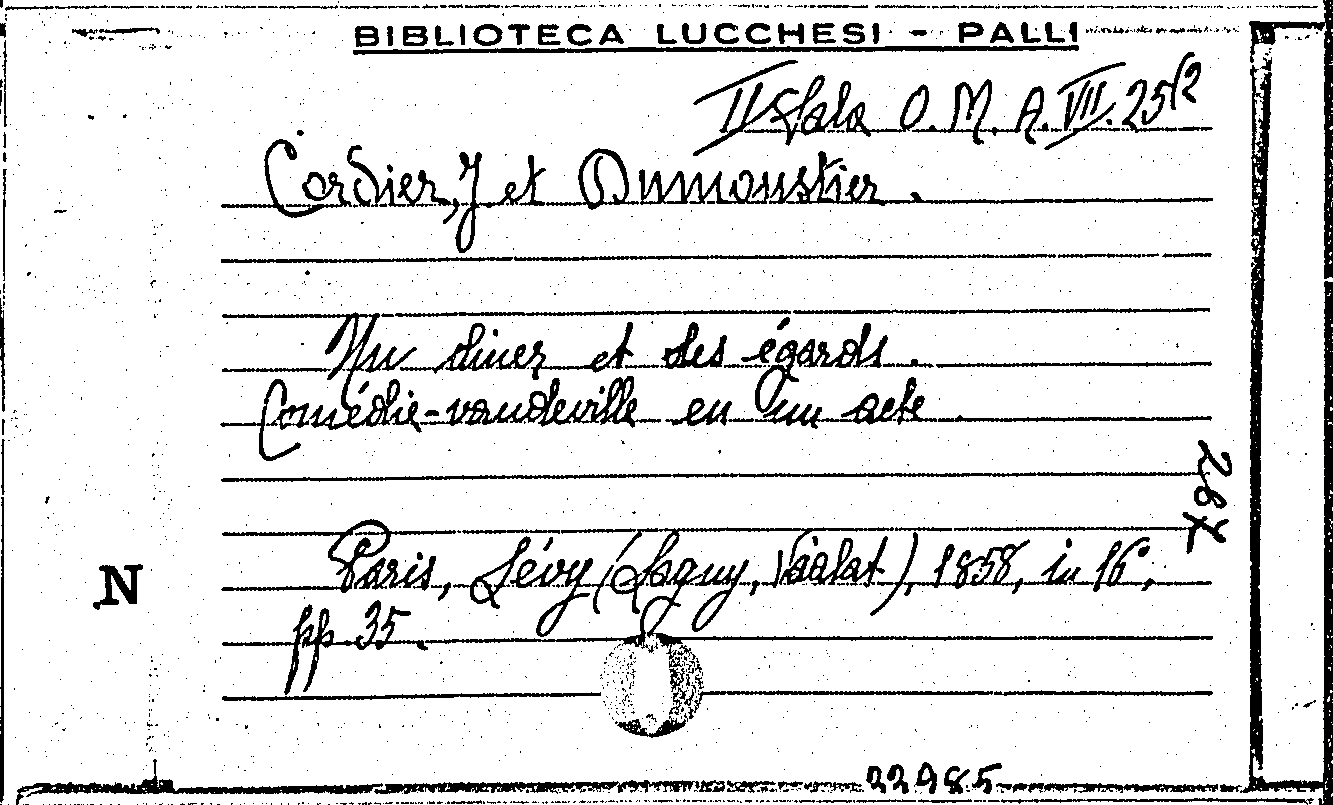 BIBLIOTECA LUCCHESI - PALLI
II Sala O. M. A. VII. 25/2
Cordier, J. et Dumoustier.
Un diner et des égards.
Comédie-vaudeville en un acte.
287
Paris, Lévy (Lagny, Vialat), 1858, in 16°,
N
pp. 35.
22985